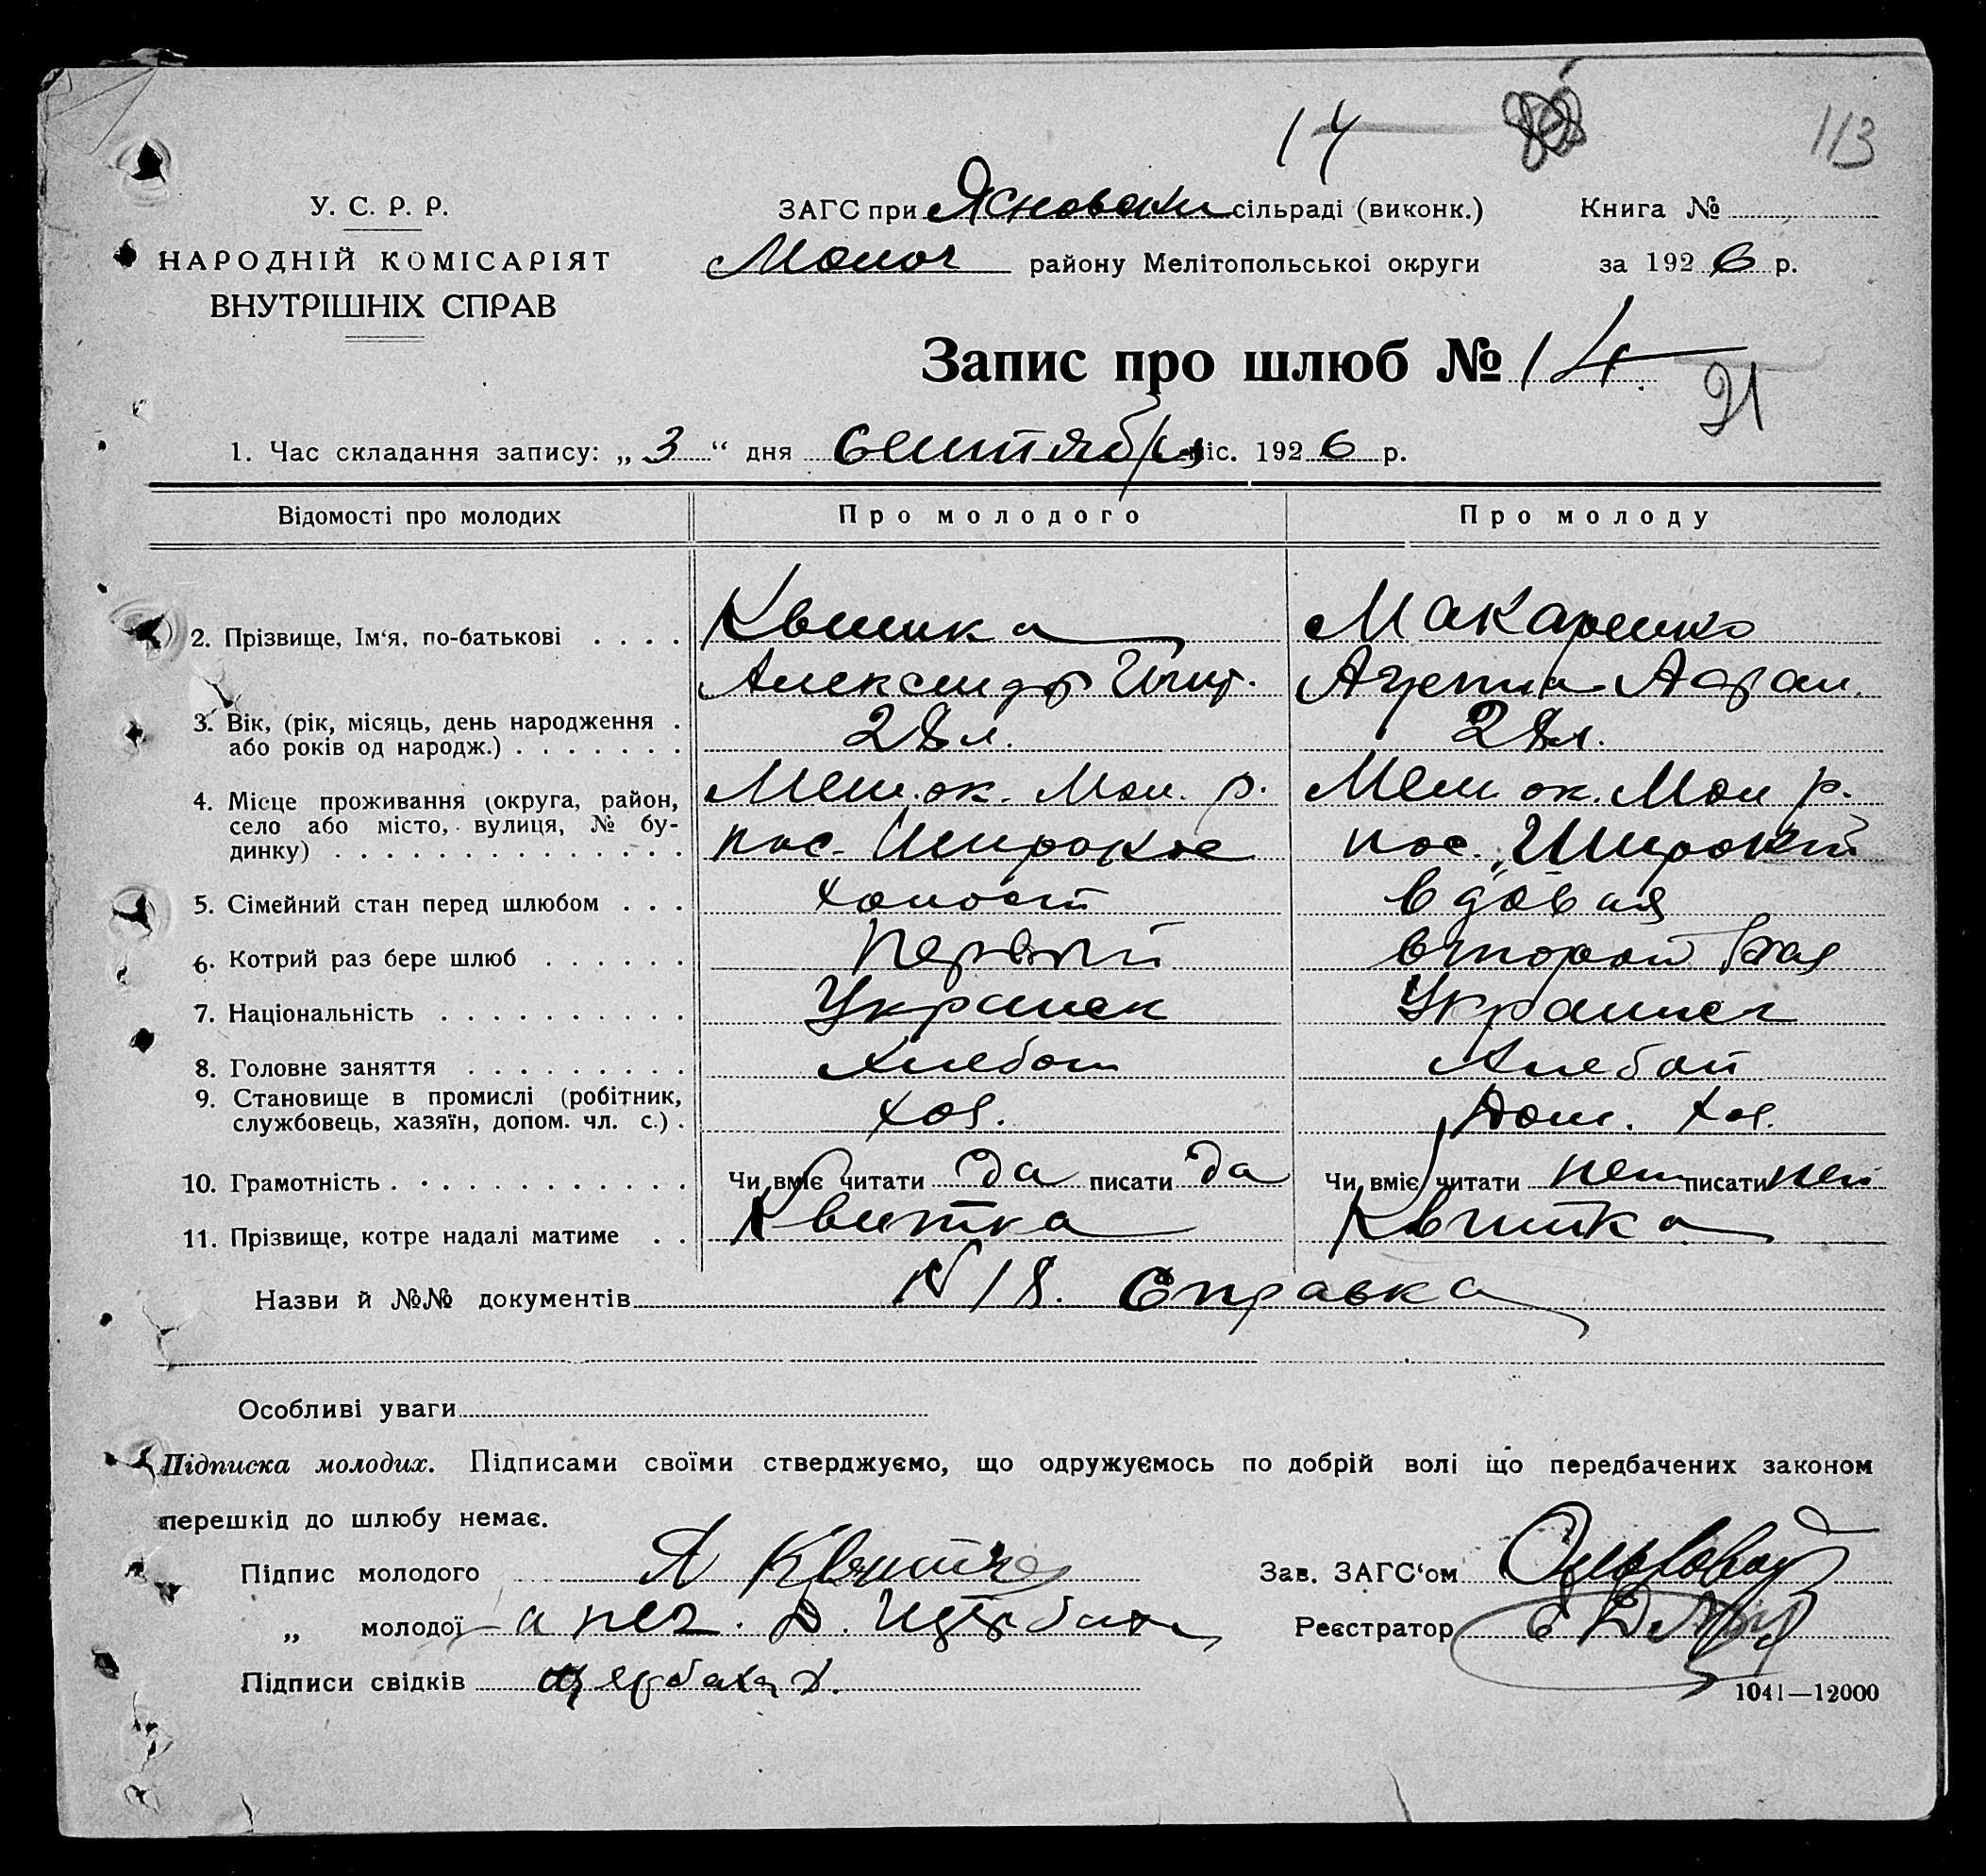 14
113
У. С. Р. Р.
ЗАГС при сільраді (виконк.) Книга №
НАРОДНІЙ КОМІСАРІЯТ
Молоч району Мелітопольської округи за 1926 р.
ВНУТРІШНІХ СПРАВ
Запис про шлюб № 14
21
1. Час складання запису: „3“ дня Сентября міс. 1926 р.
Відомості про молодих Про молодого Про молоду
2. Прізвище, Ім‘я, по-батькові . . . . Квитка Макаренко
Александр
3. Вік, (рік, місяць, день народження .
або років од народж.) . . . . . . . 28 л. 28 л.
4. Місце проживання (округа, район, Мел. ок. Мол. р. Мел ок. Мол р.
село або місто, вулиця, № бу-
динку) . . . . . . . . . . . . . . . пос. Широкое пос. Широкий
5. Сімейний стан перед шлюбом . . . холост вдовая
6. Котрий раз бере шлюб . . . . . . Первый второй
7. Національність . . . . . . . . . . Украинск
8. Головне заняття . . . . . . . . . Хлебоп Хлебоп
9. Становище в промислі (робітник,
службовець, хазяїн, допом. чл. с.) . хоз. хоз.
10. Грамотність . . . . . . . . . . . . Чи вміє читати да писати да Чи вміє читати нет писати нет
11. Прізвище, котре надалі матиме . . Квитка Квитка
Назви й №№ документів N 18. Справка
Особливі уваги
Підписка молодих. Підписами своїми стверджуємо, що одружуємось по добрій волі що передбачених законом
перешкід до шлюбу немає.
Підпис молодого Зав. ЗАГС‘ом
„ молодої а нег. Реєстратор
Підписи свідків
1041—12000